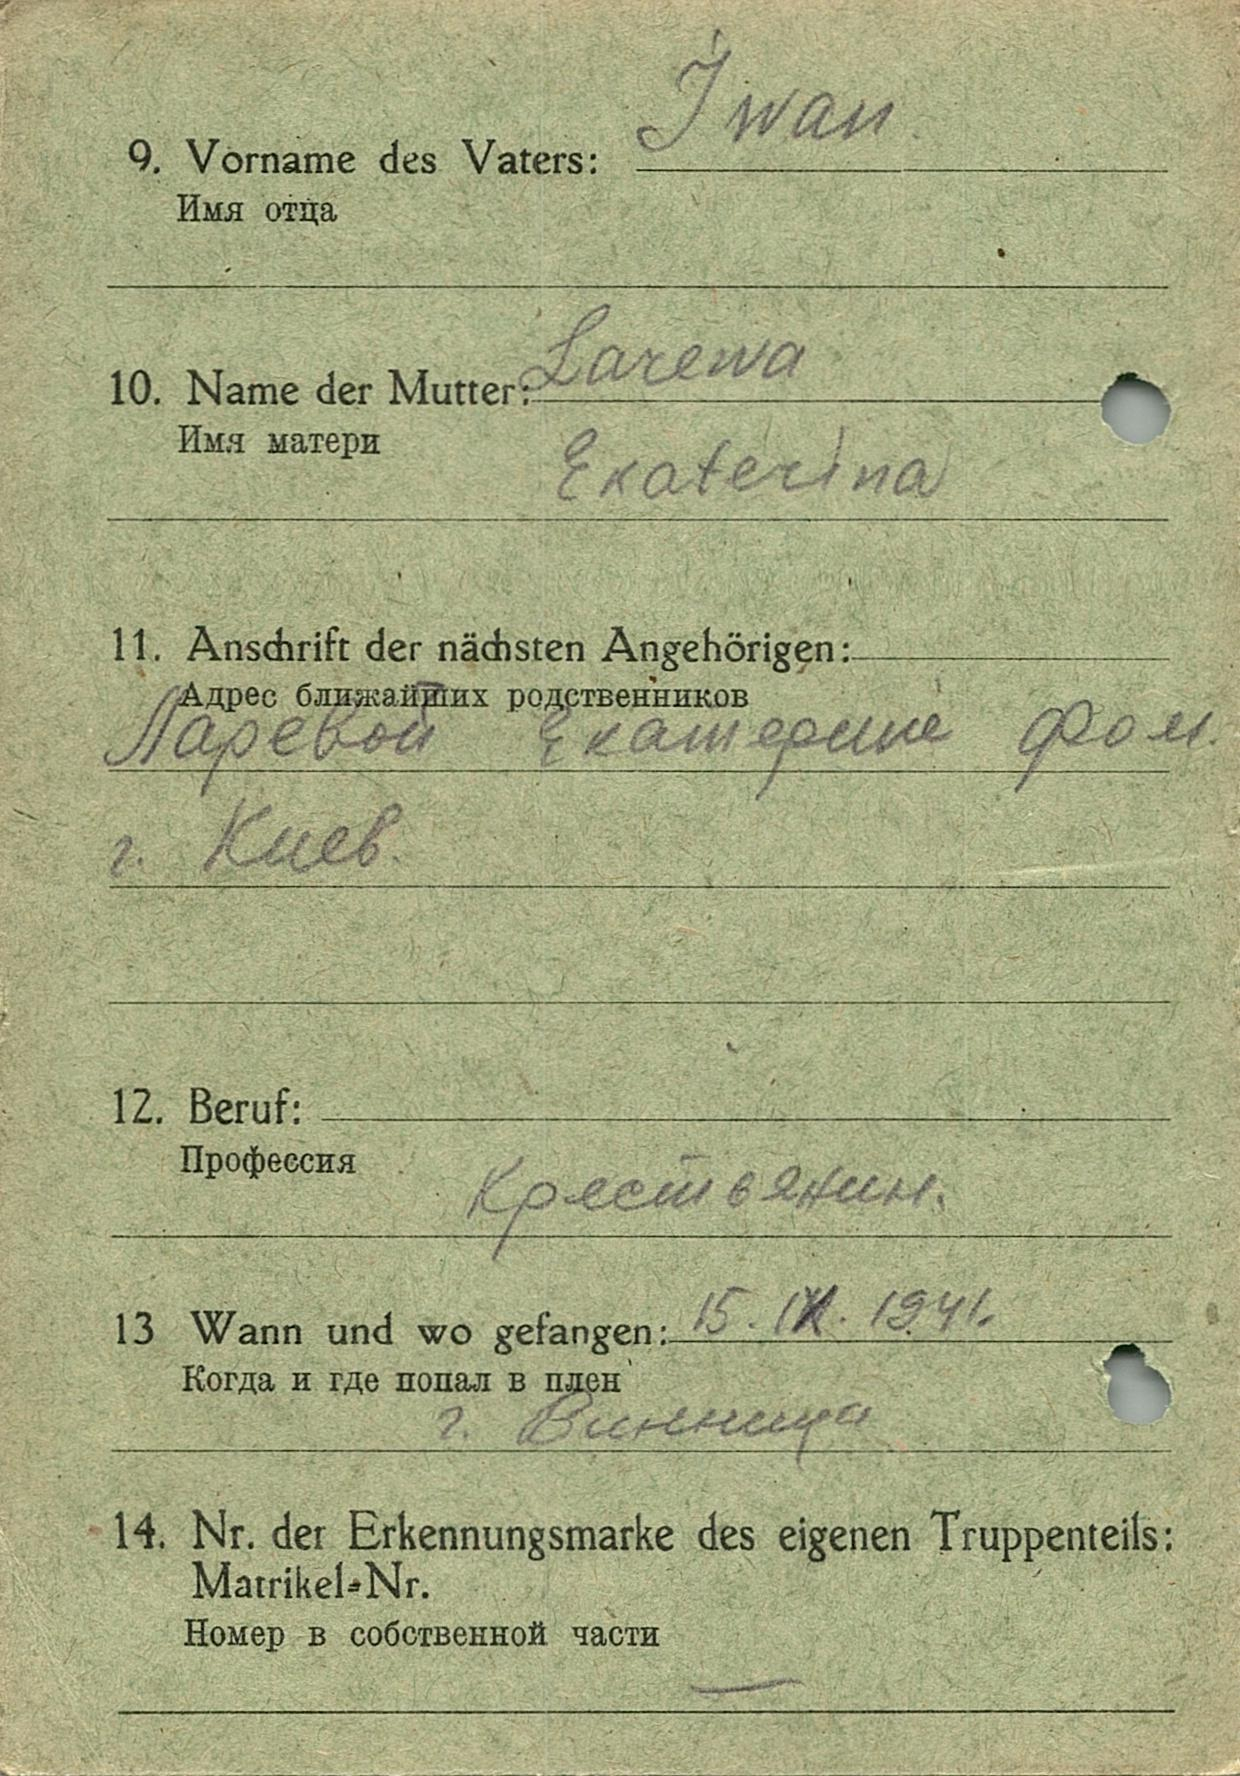 9. Vorname des Vaters: Iwan.
Имя отца
10. Name der Mutter: Larewa
Имя матери
Ekaterina
11. Anschrift der nächsten Angehörigen:
Адрес ближайших родственников
Ларевой Екатерине Фом.
г. Киев.
12. Beruf:
Профессия
Крестьянин.
13 Wann und wo gefangen: 15. 1941.
Когда и где попал в плен
г. Винница
14. Nr. der Erkennungsmarke des eigenen Truppenteils:
Matrikel-Nr.
Номер в собственной части
—